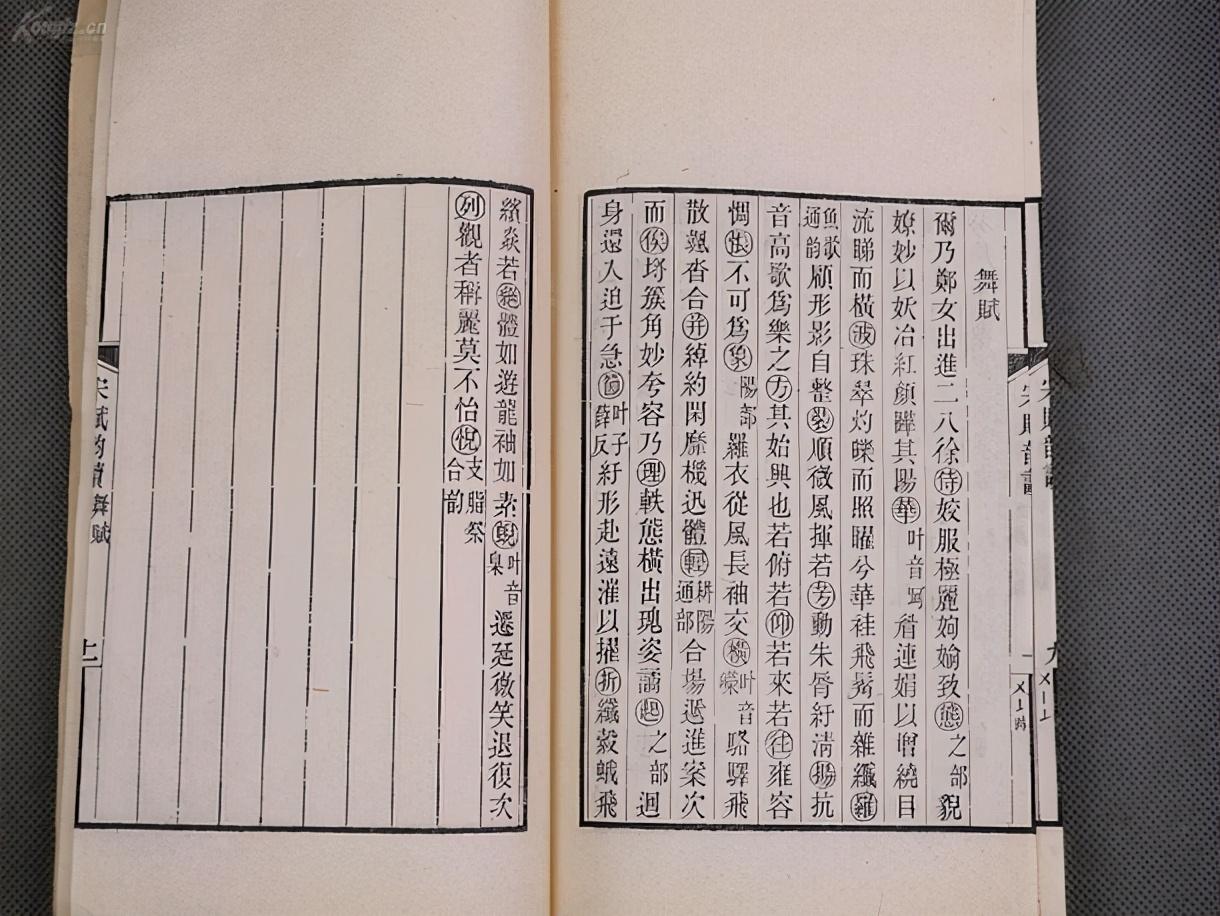 舞賦
爾乃鄭女出進二八徐侍姣服極麗姁媮致態之部貌
嫽妙以妖冶紅顏曄其陽華叶音眉連娟以增繞目
流睇而橫波珠翠灼皪而照曜兮華袿飛髾而雜纖羅
魚歌通韵顧形影自整裝順微風揮若芳動朱脣紆清揚抗
音高歌爲樂之方其始興也若俯若仰若來若往雍容
惆悵不可爲象陽部羅衣從風長袖交橫叶音駱驛飛
散颯沓合并綽約閑靡機迅體輕耕陽通部合場遞進案次
而俟埒簇角妙夸容乃理軼態橫出瑰姿譎起之部迴
身還入迫于急節叶子薛反紆形赴遠漼以摧折纖縠蛾飛
繽焱若絕體如遊龍袖如素蜺叶音臬遷延微笑退復次
列觀者稱麗莫不怡悅支脂祭合韵
宋賦韵讀 舞賦
上